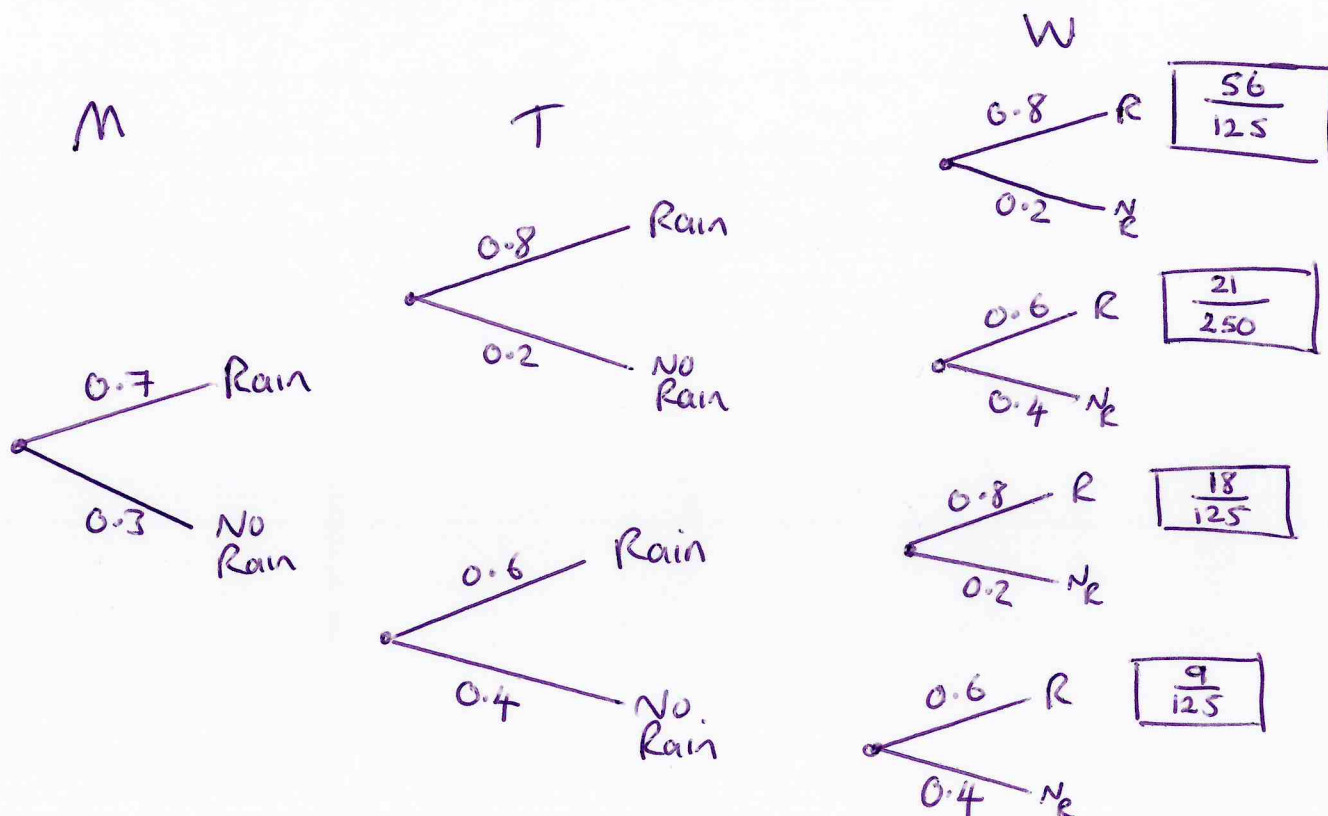 M
T
W
0.7
Rain
0.3
No
Rain
0.8
Rain
0.2
No
Rain
0.6
Rain
0.4
No
Rain
0.8
R
56
125
0.2
NR
0.6
R
21
250
0.4
NR
0.8
R
18
125
0.2
NR
0.6
R
9
125
0.4
NR